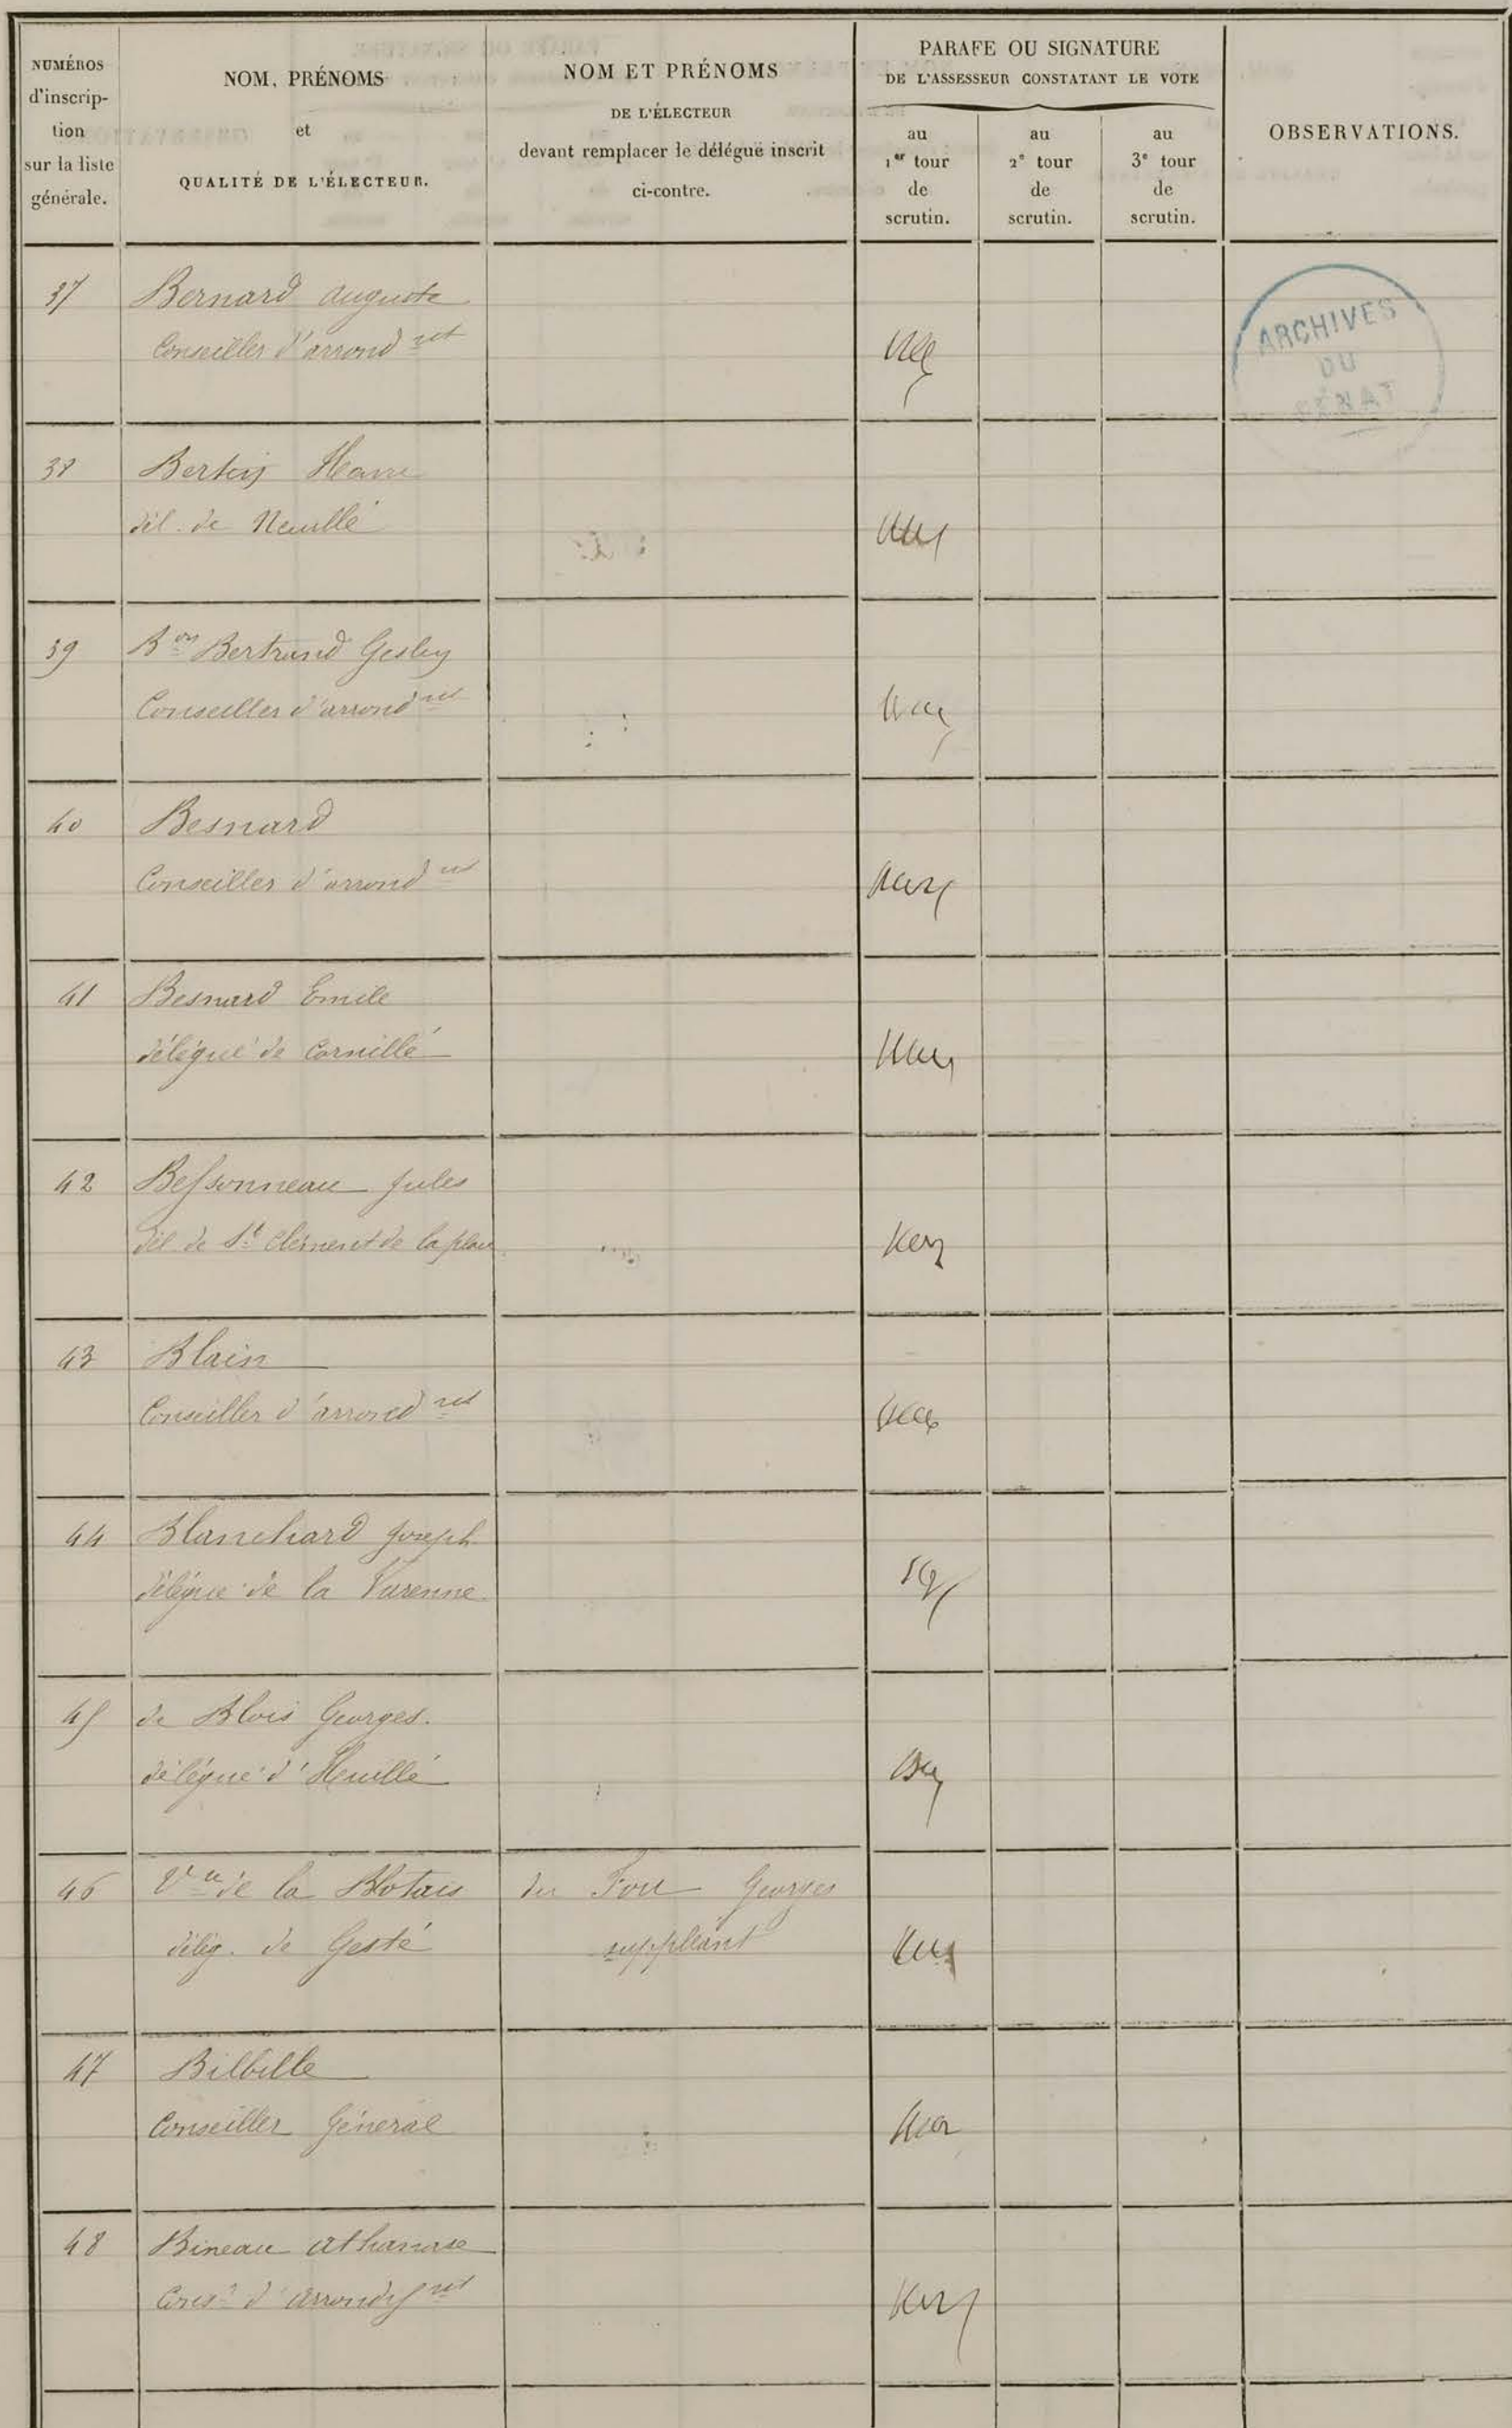 NUMÉROS
d'inscrip-
tion
sur la liste
générale.
NOM, PRÉNOMS
et
QUALITÉ DE L'ÉLECTEUR.
NOM ET PRÉNOMS
DE L'ÉLECTEUR
devant remplacer le délégué inscrit
ci-contre.
PARAFE OU SIGNATURE
DE L'ASSESSEUR CONSTATANT LE VOTE
au
1er tour
de
scrutin.
au
2e tour
de
scrutin.
au
3e tour
de
scrutin.
OBSERVATIONS.
ARCHIVES
DU
SÉNAT
37 Bernard Auguste
Conseiller d'arrond nt
38
dél. de Neuillé
39 Bon Bertrand Geslin
Conseiller d'arrond nt
40 Besnard
Conseiller d'arrond nt
41 Besnard Emile
délégué de Cornillé
42 Bessonneau Jules
dél de St Clément de la place
43 Blain
Conseiller d'arrond nt
44 Blanchard Joseph
délégué de la Varenne
45 de Blois Georges.
délégué d'Huillé
46 Vte de la Blotais du Fou Georges
délég. de Gesté suppléant
47 Bilbille
Conseiller Général
48 Bineau Athanase
Conser d'arrondis nt